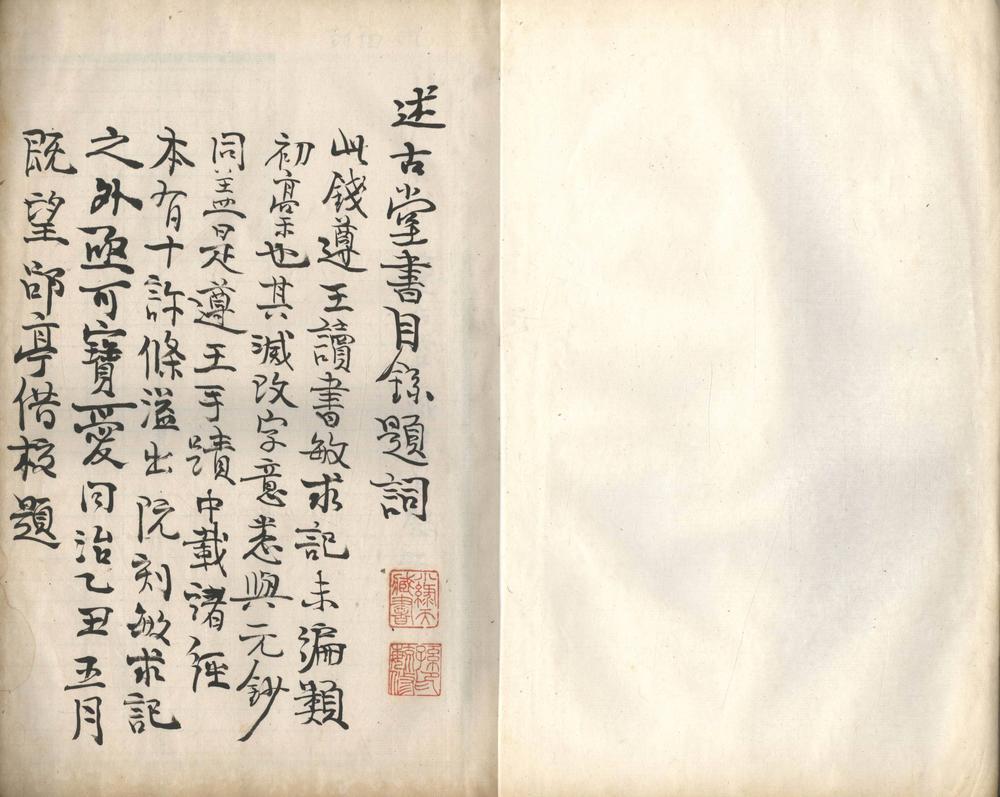 述古堂書目錄題詞
此錢遵王讀書敏求記未編類
初稾也其減改字意悉與元鈔
同蓋是遵王手蹟中載諸經
本有十許條溢出阮刻敏求記
之外亟可寶愛同治乙丑五月
既望郘亭借校題
小綠天
藏書
孫印
毓修